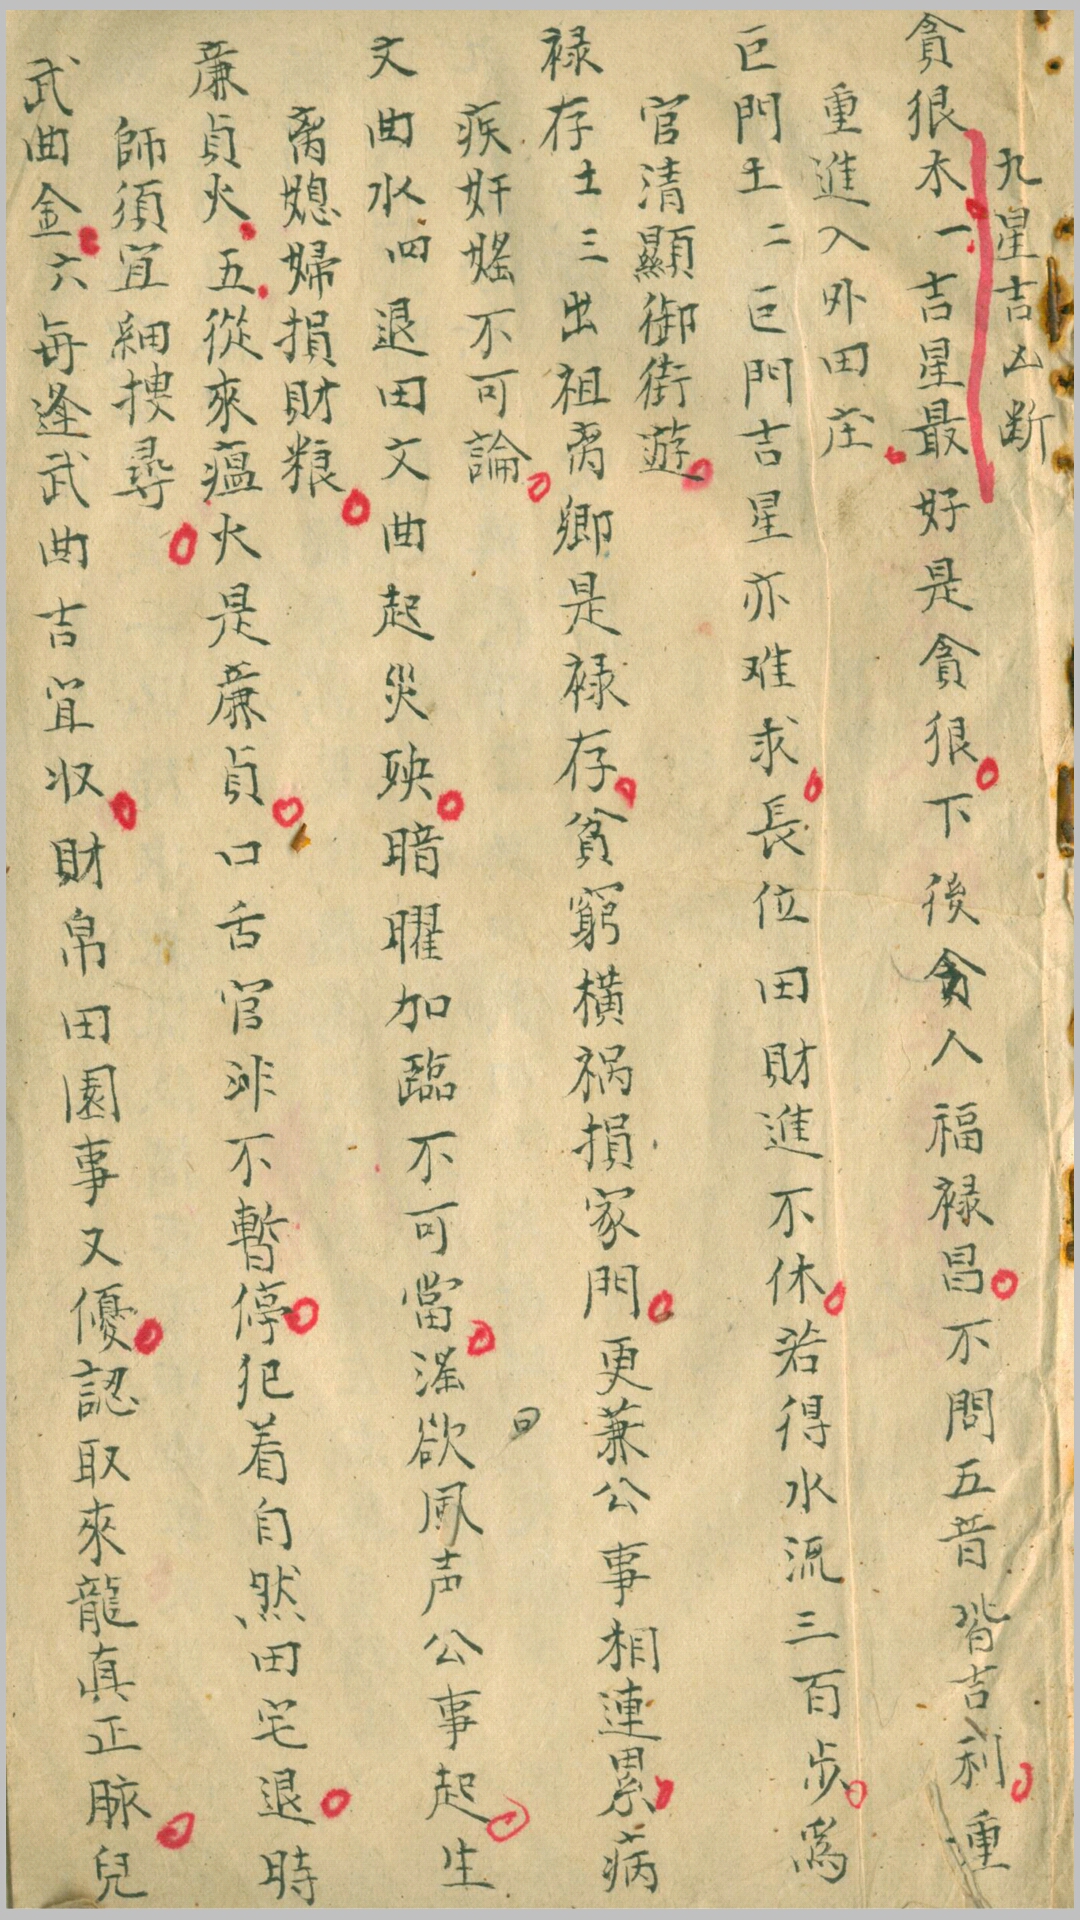 九星吉凶断
貪狼木一吉星最好是貪狼下後貪人福禄昌不問五音皆吉利重
重進入外田庄
巨門土二巨門吉星亦难求長位田財進不休若得水流三百步爲
官清顯御街遊
禄存土三出祖离鄉是禄存貧窮橫祸損家門更兼公事相連累病
疾奸媱不可論
文曲水四退田文曲起災殃暗曜加臨不可當滛欲風声公事起生
离媳婦損財粮
亷貞火五從來瘟火是亷貞口舌官非不暫停犯着自然田宅退時
師須宜細搜尋
武曲金六每逢武曲吉宜収財帛田園事又優認取來龍真正脉兒